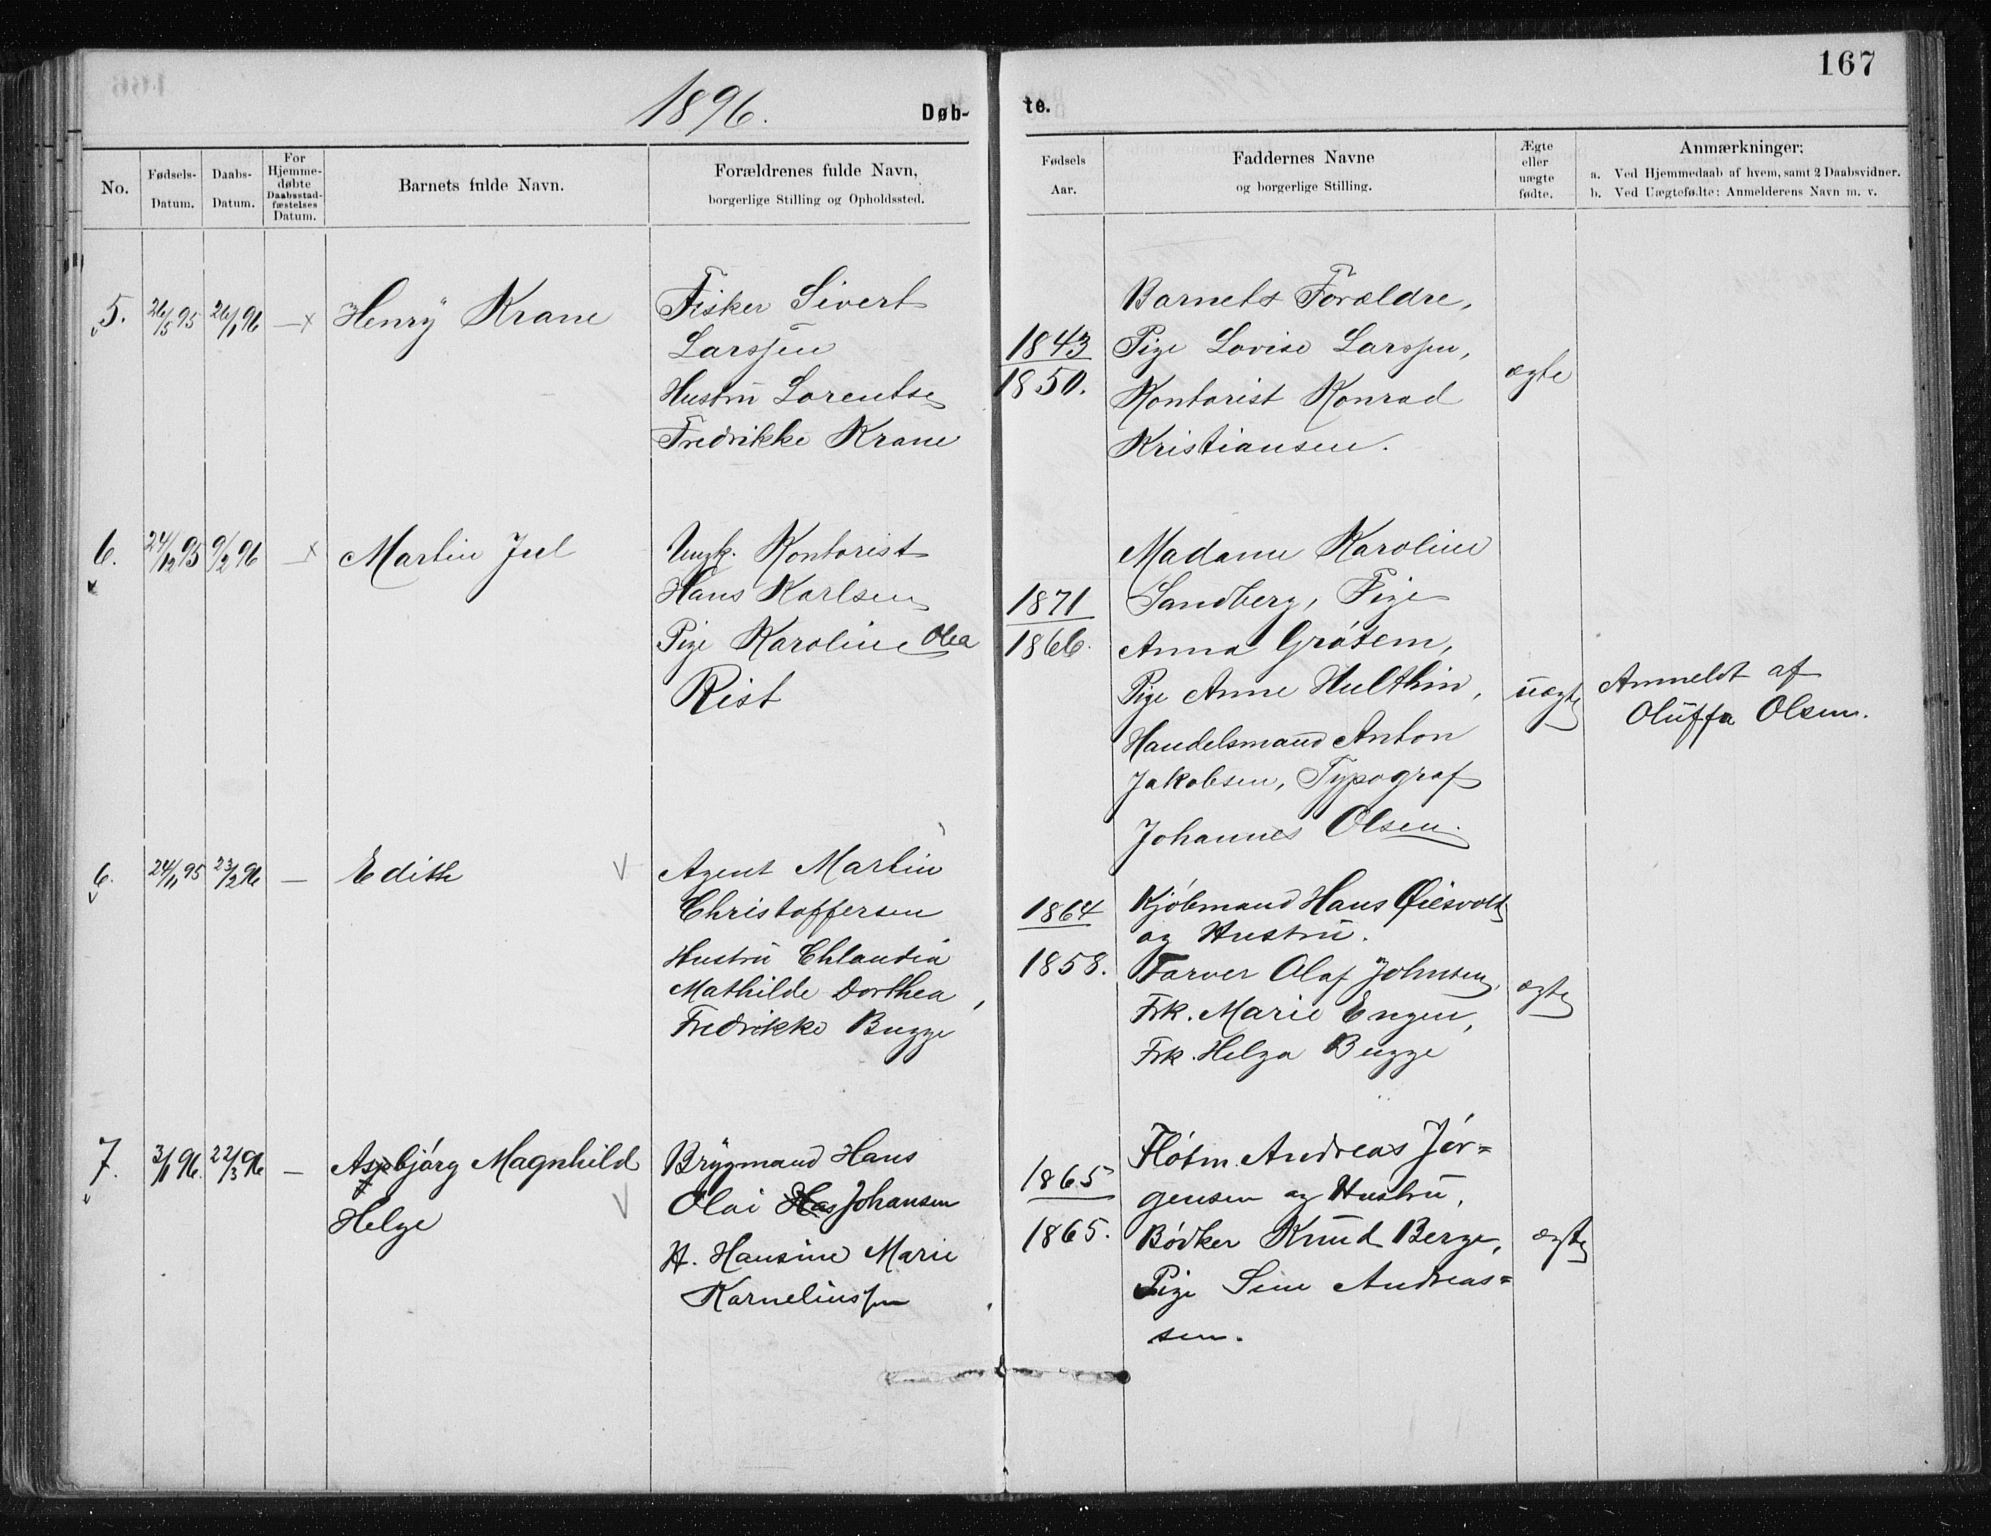 167
1896.
Døb-
te.
No.
Fødsels-
Datum.
Daabs-
Datum.
For
Hjemme-
døbte
Daabsstad-
fæstelses
Datum.
Barnets fulde Navn.
Forældrenes fulde Navn,
borgerlige Stilling og Opholdssted.
Fødsels
Aar.
Faddernes Navne
og borgerlige Stilling.
Ægte
eller
uægte
fødte.
Anmærkninger:
a. Ved Hjemmedaab af hvem, samt 2 Daabsvidner.
b. Ved Uægtefødte: Anmelderens Navn m. v.
5.
26/5 95
26/1 96
— x
Henrÿ Krane
Fisker Sivert
Larssen
Hustrū Lorentse
Fredrikke Krane
1843
1850.
Barnets Forældre,
Pige Lovise Larssen,
Kontorist Konrad
Kristiansen.
ægte
6.
24/12 95
9/2 96
— x
Martin Juel
Ungk. Kontorist
Hans Karlsen
Pige Karoline Olea
Rist
1871
1866.
Madame Karoline
Sandberg, Pige
Anna Grótem,
Pige Anne Hulthin,
Handelsmand Anton
Jakobsen, Typograf
Johannes Olsen.
ūægte
Anmeldt af
Olūffa Olsen.
6.
24/11 95
23/2 96
—
Edith
Agent Martin
Christoffersen
Hustrū Chlaudia
Mathilde Dorthea,
Fredrikke Bugge
1864
1858.
Kjóbmand Hans Øiesvold
og Hustrū.
Farver Olaf Johnsen,
Frk. Marie Engen,
Frk. Helga Bugge
ægte
7.
3/1 96.
22/3 96
—
Asbjórg Magnhild
Helge
Brÿgmand Hans
Olai Johansen
H. Hansine Marie
Korneliussen
1865
1865.
Flótm. Andreas Jór=
gensen og Hustrū,
Bódker Knūd Berge,
Pige Sine Andreas=
sen.
ægte